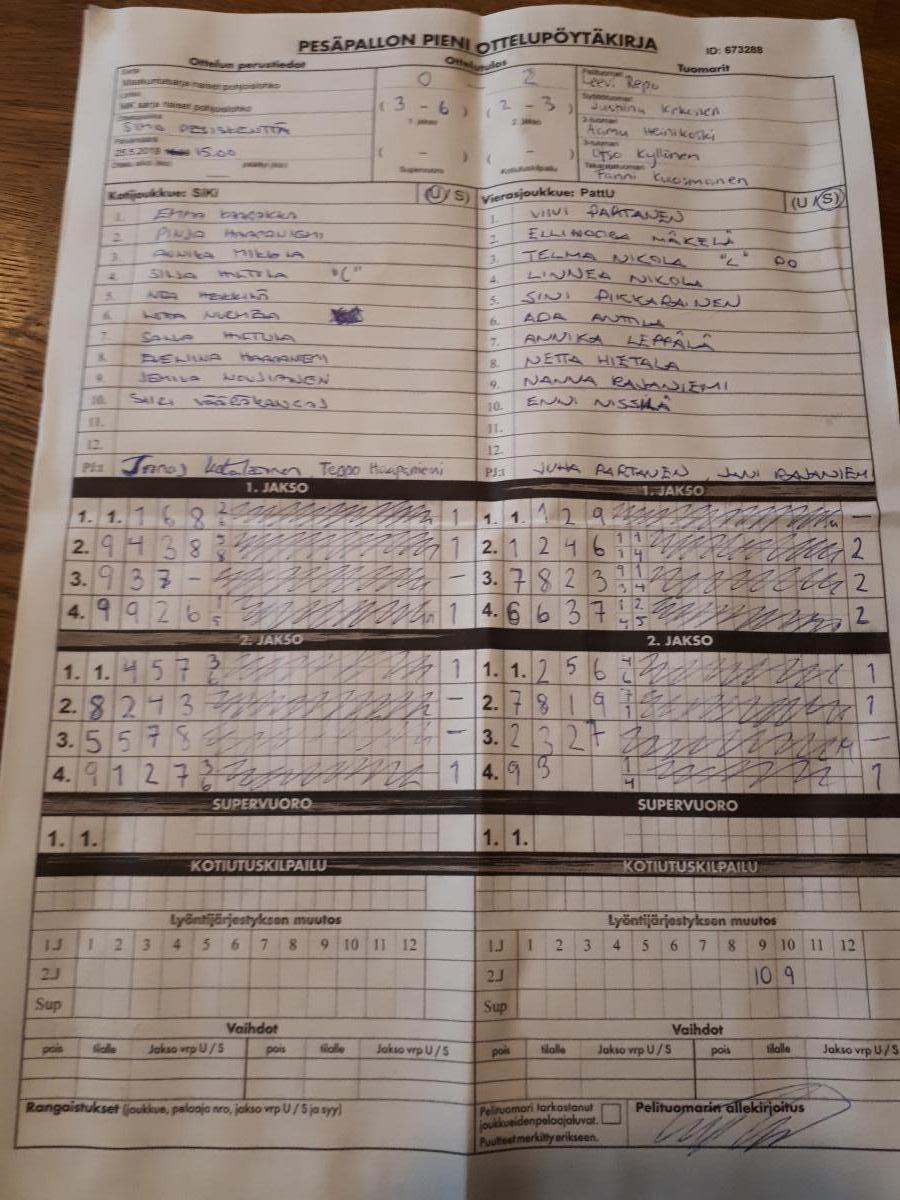 PESÄPALLON PIENI OTTELUPÖYTÄKIRJA
ID: 673288
Ottelun perustiedot
Ottelutulos
Tuomarit
Sarja
Maakuntasarja naiset pohjoislohko
0 2
Pelituomari
Leevi Repo
Lohko
MK sarja naiset pohjoislohko
( 3 - 6 ) ( 2 - 3 )
1. jakso 2. jakso
Syöttötuomari
2-tuomari
Aamu Heinikoski
SIMA
3-tuomari
Otso Kyllönen
25.5.2019 15.00
( - ) ( - )
Supervuoro Kotiutuskilpailu
Takarajatuomari
Fanni Kuosmanen
Kotijoukkue: SiKi (U / S)
Vierasjoukkue: PattU (U / S)
1. EMMA
2. PINJA HAAPANIEMI
3. ANNIKA MIKKOLA
4. SILJA MATTILA "C"
5. NEA HEIKKILÄ
6.
7. MATTILA
8. EVELIINA HAAPANIEMI
9. NOUSIAINEN
10. SIIRI VÄÄRÄKANGAS
11.
12.
PJ:t Teppo Haapaniemi
1. VIIVI PARTANEN
2. ELLINOORA MÄKELÄ
3. TELMA NIKOLA "C" PO
4. LINNEA NIKOLA
5. SINI PIKKARAINEN
6. ADA ANTTILA
7. ANNIKA LEPPÄLÄ
8. NETTA HIETALA
9. NANNA RAJANIEMI
10. ENNI NISSILÄ
11.
12.
PJ:t JUHA PARTANEN, JANI RAJANIEMI
1. JAKSO
1. 1. 1 6 8 2 6 1
2. 9 4 3 8 5 8 1
3. 9 3 7 - -
4. 9 9 2 6 1 5 1
1. JAKSO
1. 1. 1 2 9 -
2. 1 2 4 6 1 1 1 4 2
3. 7 8 2 3 9 1 3 4 2
4. 6 6 3 7 1 2 4 5 2
2. JAKSO
1. 1. 4 5 7 3 6 1
2. 8 2 4 3 -
3. 5 5 7 8 -
4. 9 1 2 7 3 6 1
2. JAKSO
1. 1. 2 5 6 4 6 1
2. 7 8 1 9 7 1 1
3. 2 3 2 7 -
4. 9 3 1 4 1
SUPERVUORO
1. 1.
SUPERVUORO
1. 1.
KOTIUTUSKILPAILU
KOTIUTUSKILPAILU
Lyöntijärjestyksen muutos
1.J 1 2 3 4 5 6 7 8 9 10 11 12
2.J
Sup
Lyöntijärjestyksen muutos
1.J 1 2 3 4 5 6 7 8 9 10 11 12
2.J 10 9
Sup
Vaihdot
pois tilalle Jakso vrp U / S pois tilalle Jakso vrp U / S
Vaihdot
pois tilalle Jakso vrp U / S pois tilalle Jakso vrp U / S
Rangaistukset (joukkue, pelaaja nro, jakso vrp U / S ja syy)
Pelituomari tarkastanut
joukkueiden pelaajaluvat.
Puutteet merkitty erikseen.
Pelituomarin allekirjoitus